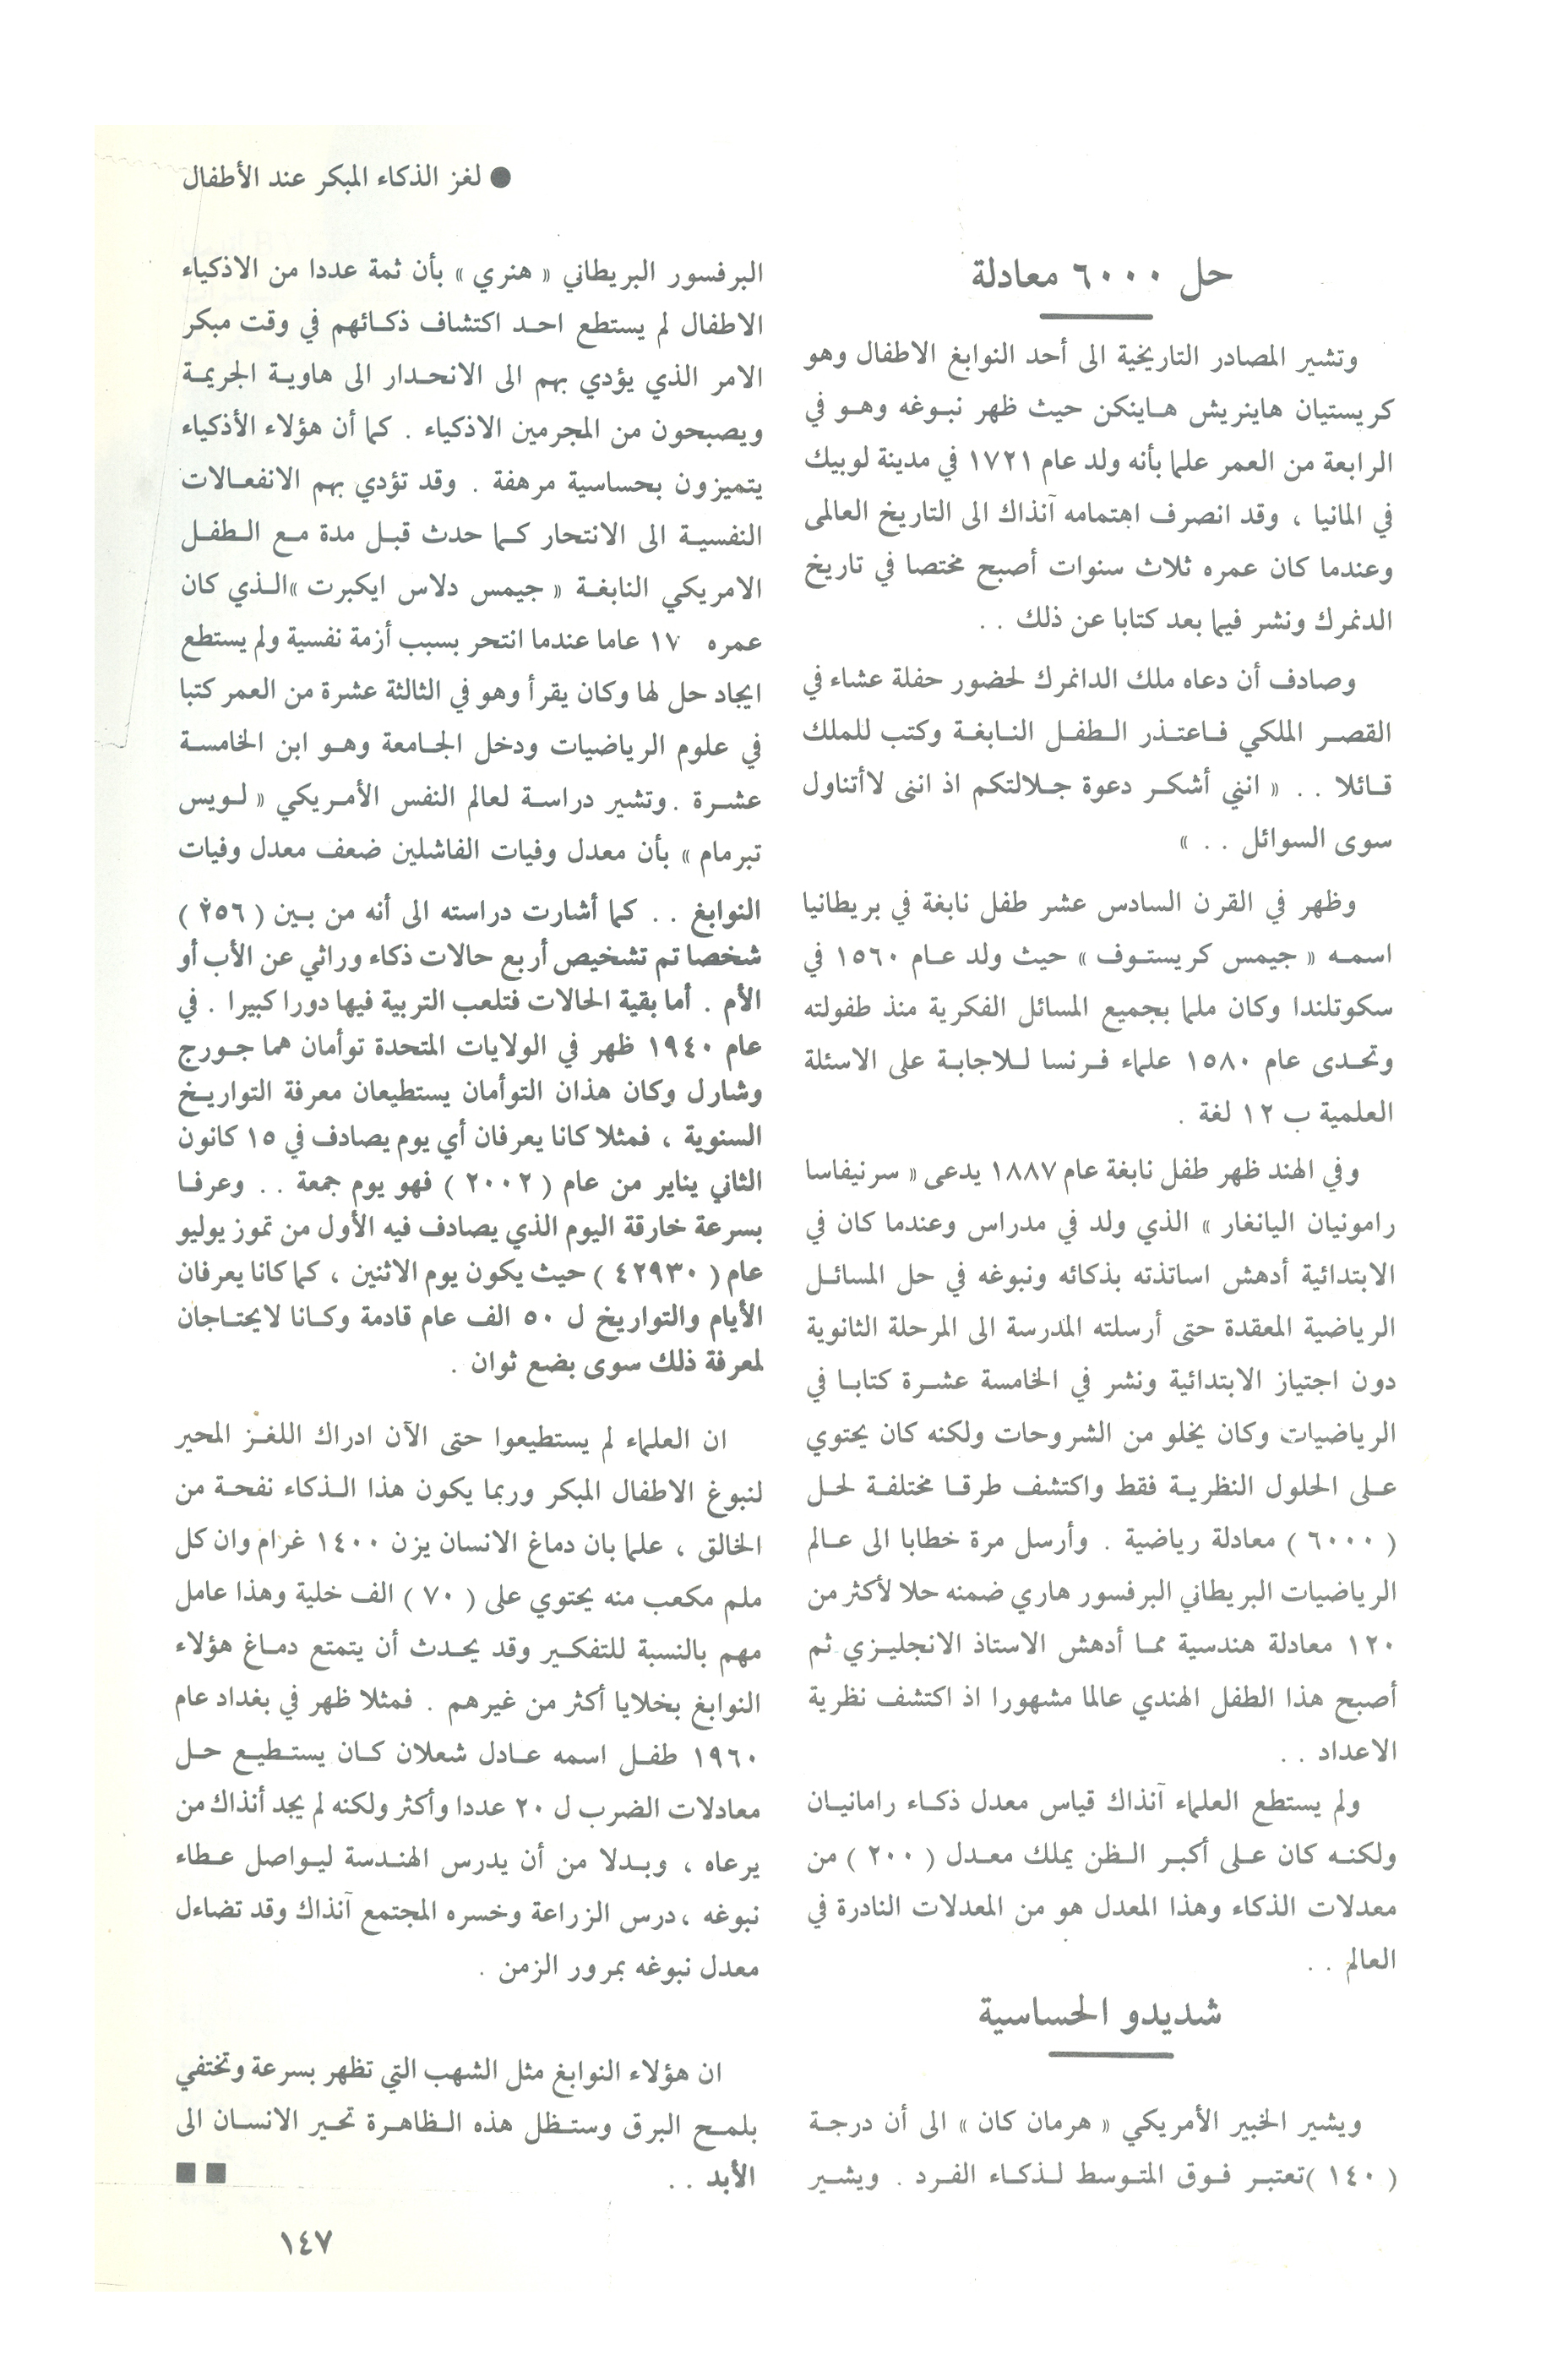 ● لغز الذكاء المبكر عند الأطفال
حل ٦٠٠٠ معادلة
وتشير المصادر التاريخية الى أحد النوابغ الاطفال وهو
كريستيان هاينريش هـاينكن حيث ظهر نبـوغه وهـو في
الرابعة من العمر علما بأنه ولد عام ١٧٢١ في مدينة لوبيك
في المانيا ، وقد انصرف اهتمامه آنذاك الى التاريخ العالمى
وعندما كان عمره ثلاث سنوات أصبح مختصا في تاريخ
الدنمرك ونشر فيما بعد كتابا عن ذلك . .
وصادف أن دعاه ملك الدانمرك لحضور حفلة عشاء في
القصـر الملكي فـاعتـذر الـطفـل النـابغـة وكتب للملك
قـائلا . . « انني أشكـر دعوة جـلالتكم اذ اننى لاأتناول
سوى السوائل . . »
وظهر في القرن السادس عشر طفل نابغة في بريطانيا
اسمـه « جيمس كريستـوف » حيث ولد عـام ١٥٦٠ في
سكوتلندا وكان ملما بجميع المسائل الفكرية منذ طفولته
وتحـدى عام ١٥٨٠ علماء فـرنسا لـلاجابـة على الاسئلة
العلمية ب ١٢ لغة .
وفي الهند ظهر طفل نابغة عام ١٨٨٧ يدعى « سرنيفاسا
رامونيان اليانغار » الذي ولد في مدراس وعندما كان في
الابتدائية أدهش اساتذته بذكائه ونبوغه في حل المسائـل
الرياضية المعقدة حتى أرسلته المدرسة الى المرحلة الثانوية
دون اجتياز الابتدائية ونشر في الخامسة عشـرة كتابـا في
الرياضيات وكان يخلو من الشروحات ولكنه كان يحتوي
عـلى الحلول النظريـة فقط واكتشف طرقـا مختلفـة لحـل
( ٦٠٠٠ ) معادلة رياضية . وأرسل مرة خطابا الى عـالم
الرياضيات البريطاني البرفسور هاري ضمنه حلا لأكثر من
١٢٠ معادلة هندسية ممـا أدهش الاستاذ الانجليـزي ثم
أصبح هذا الطفل الهندي عالما مشهورا اذ اكتشف نظرية
الاعداد . .
ولم يستطع العلماء آنذاك قياس معدل ذكـاء رامانيـان
ولكنـه كان عـلى أكبـر الـظن يملك معـدل ( ٢٠٠ ) من
معدلات الذكاء وهذا المعدل هو من المعدلات النادرة في
العالم . .
شديدو الحساسية
ويشير الخبير الأمريكي « هرمان كان » الى أن درجـة
( ١٤٠ )تعتبـر فـوق المتـوسط لـذكـاء الفـرد . ويشـير
البرفسور البريطاني « هنري » بأن ثمة عددا من الاذكياء
الاطفال لم يستطع احـد اكتشاف ذكـائهم في وقت مبكر
الامر الذي يؤدي بهم الى الانحـدار الى هاويـة الجريمـة
ويصبحون من المجرمين الاذكياء . كما أن هؤلاء الأذكياء
يتميزون بحساسية مرهفة . وقد تؤدي بهم الانفعـالات
النفسيـة الى الانتحار كـما حدث قبـل مدة مـع الـطفـل
الامريكي النابغـة « جيمس دلاس ايكبرت »الـذي كان
عمره ١٧ عاما عندما انتحر بسبب أزمة نفسية ولم يستطع
ايجاد حل لها وكان يقرأ وهو في الثالثة عشرة من العمر كتبا
في علوم الرياضيات ودخل الجـامعة وهـو ابن الخامسـة
عشـرة .وتشير دراسـة لعالم النفس الأمـريكي « لـويس
تيرمام » بأن معدل وفيات الفاشلين ضعف معدل وفيات
النوابغ . . كما أشارت دراسته الى أنه من بـين ( ٢٥٦ )
شخصا تم تشخيص أربع حالات ذكاء وراثي عن الأب أو
الأم . أما بقية الحالات فتلعب التربية فيها دورا كبيرا . في
عام ١٩٤٠ ظهر في الولايات المتحدة توأمان هما جـورج
وشارل وكان هذان التوأمان يستطيعان معرفة التواريـخ
السنوية ، فمثلا كانا يعرفان أي يوم يصادف في ١٥ كانون
الثاني يناير من عام ( ٢٠٠٢ ) فهو يوم جمعة . . وعرفـا
بسرعة خارقة اليوم الذي يصادف فيه الأول من تموز يوليو
عام ( ٤٢٩٣٠ ) حيث يكون يوم الاثنين ، كما كانا يعرفان
الأيام والتواريخ ل ٥٠ الف عام قادمة وكـانا لايحتـاجان
لمعرفة ذلك سوى بضع ثوان .
ان العلماء لم يستطيعوا حتى الآن ادراك اللغـز المحير
لنبوغ الاطفال المبكر وربما يكون هذا الـذكاء نفحـة من
الخالق ، علما بان دماغ الانسان يزن ١٤٠٠ غرام وان كل
ملم مكعب منه يحتوي على ( ٧٠ ) الف خلية وهذا عامل
مهم بالنسبة للتفكـير وقد يحـدث أن يتمتع دمـاغ هؤلاء
النوابغ بخلايا أكثر من غيرهم . فمثلا ظهر في بغداد عام
١٩٦٠ طفـل اسمه عـادل شعلان كـان يستـطيـع حـل
معادلات الضرب ل ٢٠ عددا وأكثر ولكنه لم يجد أنذاك من
يرعاه ، وبـدلا من أن يدرس الهنـدسة ليـواصل عـطاء
نبوغه ،درس الزراعة وخسره المجتمع آنذاك وقد تضاءل
معدل نبوغه بمرور الزمن .
ان هؤلاء النوابغ مثل الشهب التي تظهر بسرعة وتختفي
بلمـح البرق وستـظل هذه الـظاهـرة تحـير الانسـان الى
الأبد . .
١٤٧